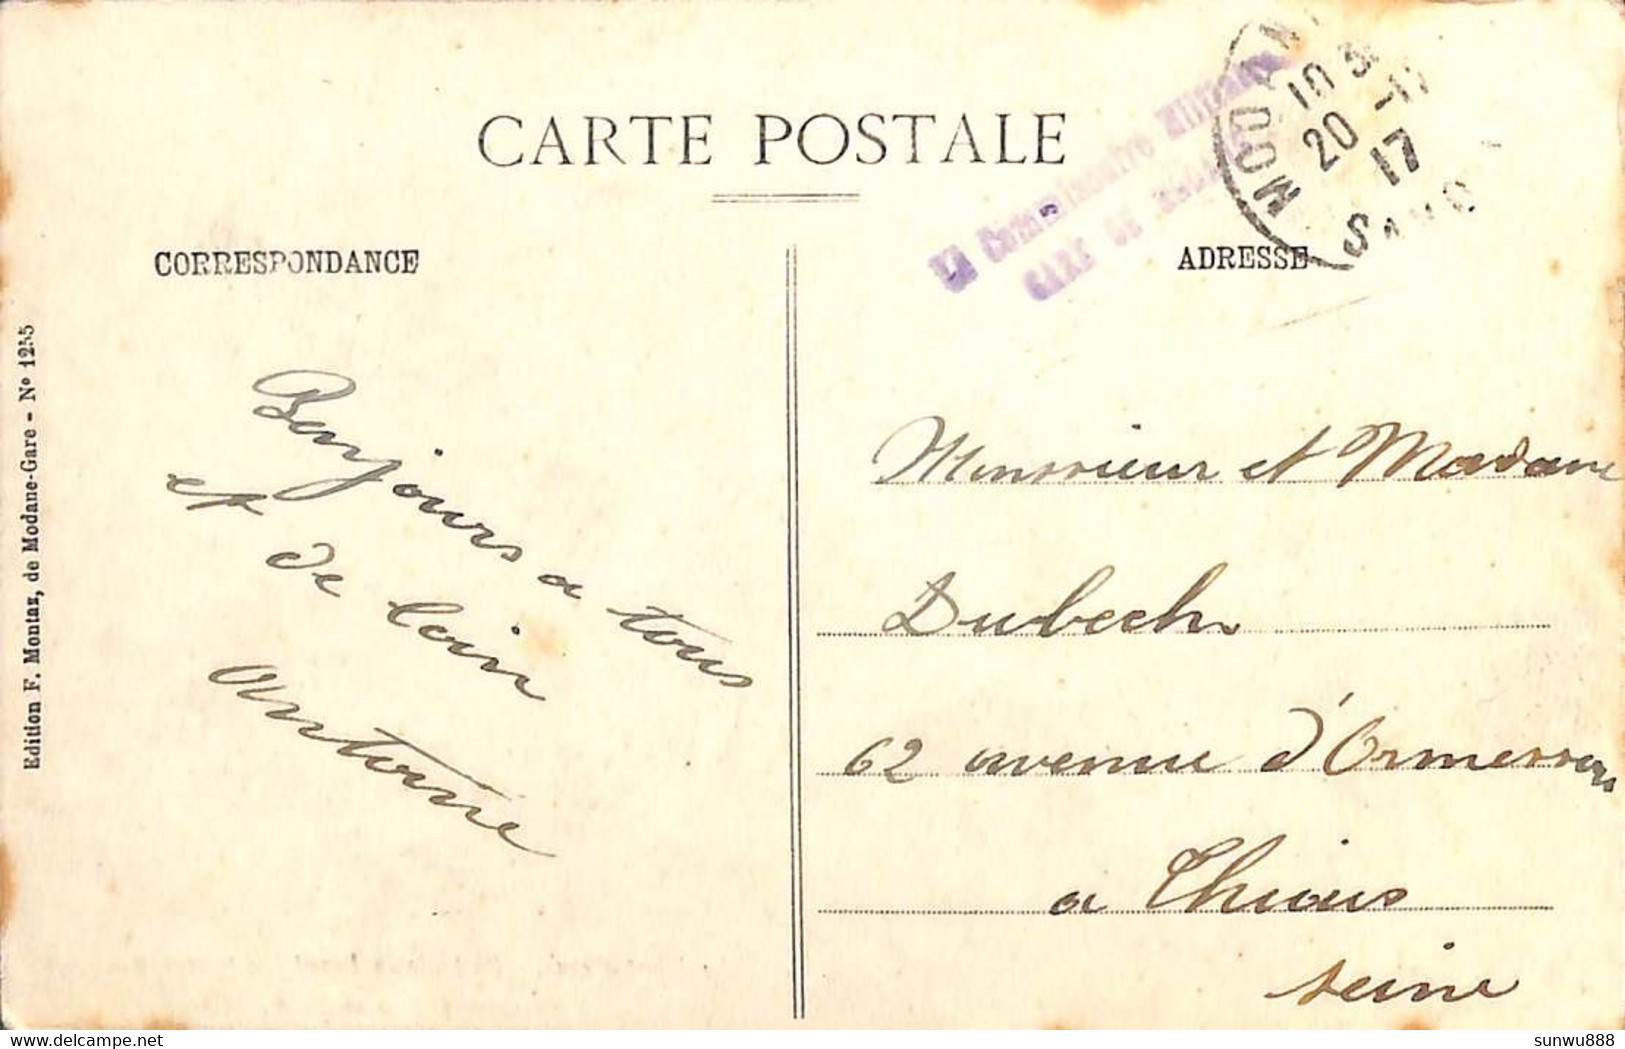 CARTE POSTALE
CORRESPONDANCE
ADRESSE
Le Commissaire Militaire
GARE DE MODANE
MODAN
10
20 -11
17
SAVO
Edition F. Montaz, de Modane-Gare - Nº 1255
Bonjours a tous
et de loin
Antoine
Monsieur et Madame
Dubech
62 avenue d'Ormesson
a Thiais
seine
sunwu888